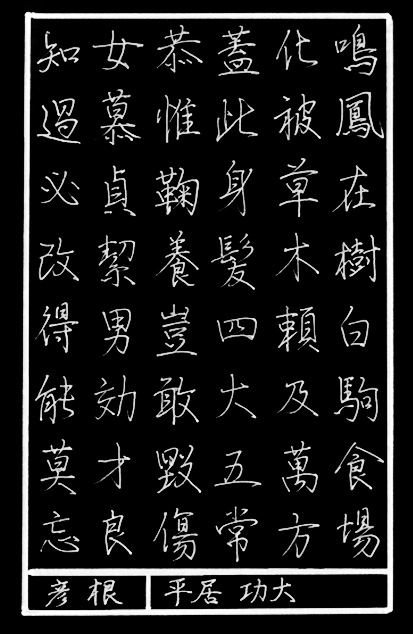 鳴鳳在樹白駒食場
化被草木頼及萬方
蓋此身髪四大五常
恭惟鞠養豈敢毀傷
女慕貞絜男効才良
知過必改得能莫忘
彦根 平居 功大